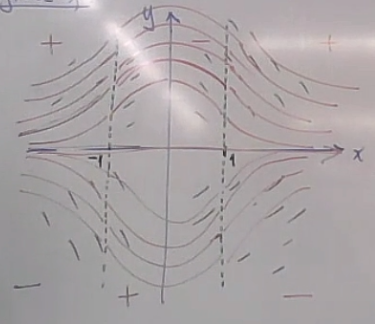 y
+ − +
-1 1 x
− + −